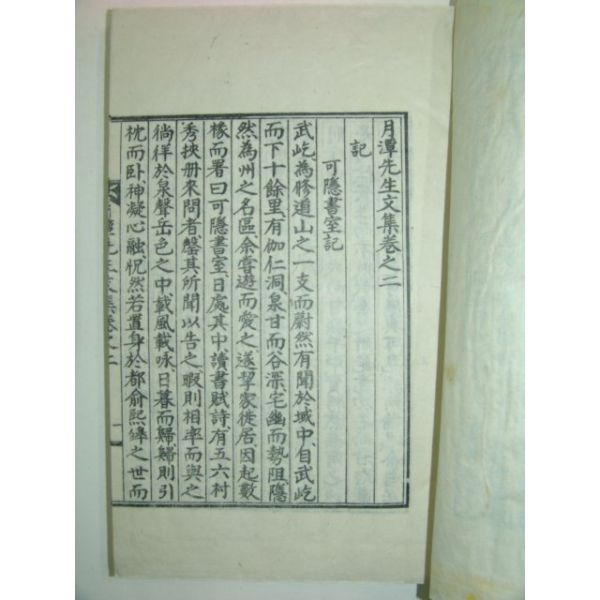 月潭先生文集卷之二
記
可隱書室記
武屹為修道山之一支而蔚然有聞於域中、自武屹
而下十餘里、有伽仁洞、泉甘而谷深、宅幽而勢阻、隱
然為州之名區、余嘗遊而愛之、遂挈家徙居、因起數
椽而署曰可隱書室、日處其中、讀書賦詩、有五六村
秀挾册來問者、罄其所聞以告之、暇則相率而與之
徜徉於泉聲岳色之中、載風載咏、日暮而歸、歸則引
枕而卧、神凝心融、怳然若置身於都俞熙皥之世、而
月潭先生文集卷之二